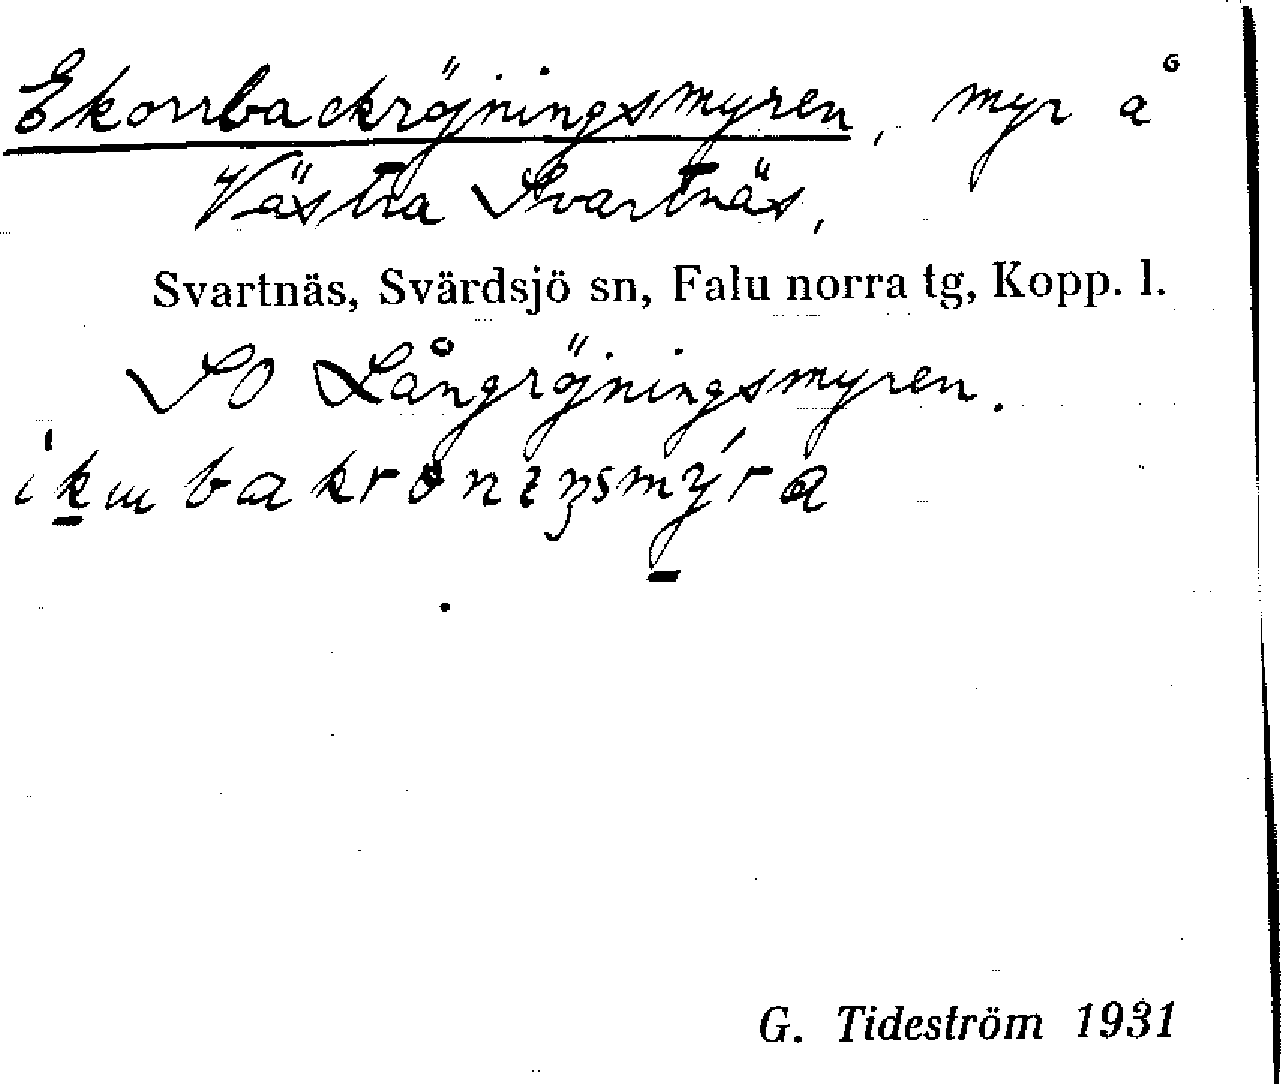 Ekorrbackröjningsmyren, myr å
Västra Svartnäs,
Svartnäs, Svärdsjö sn, Falu norra tg, Kopp. l.
SO Långröjningsmyren.
G. Tideström 1931